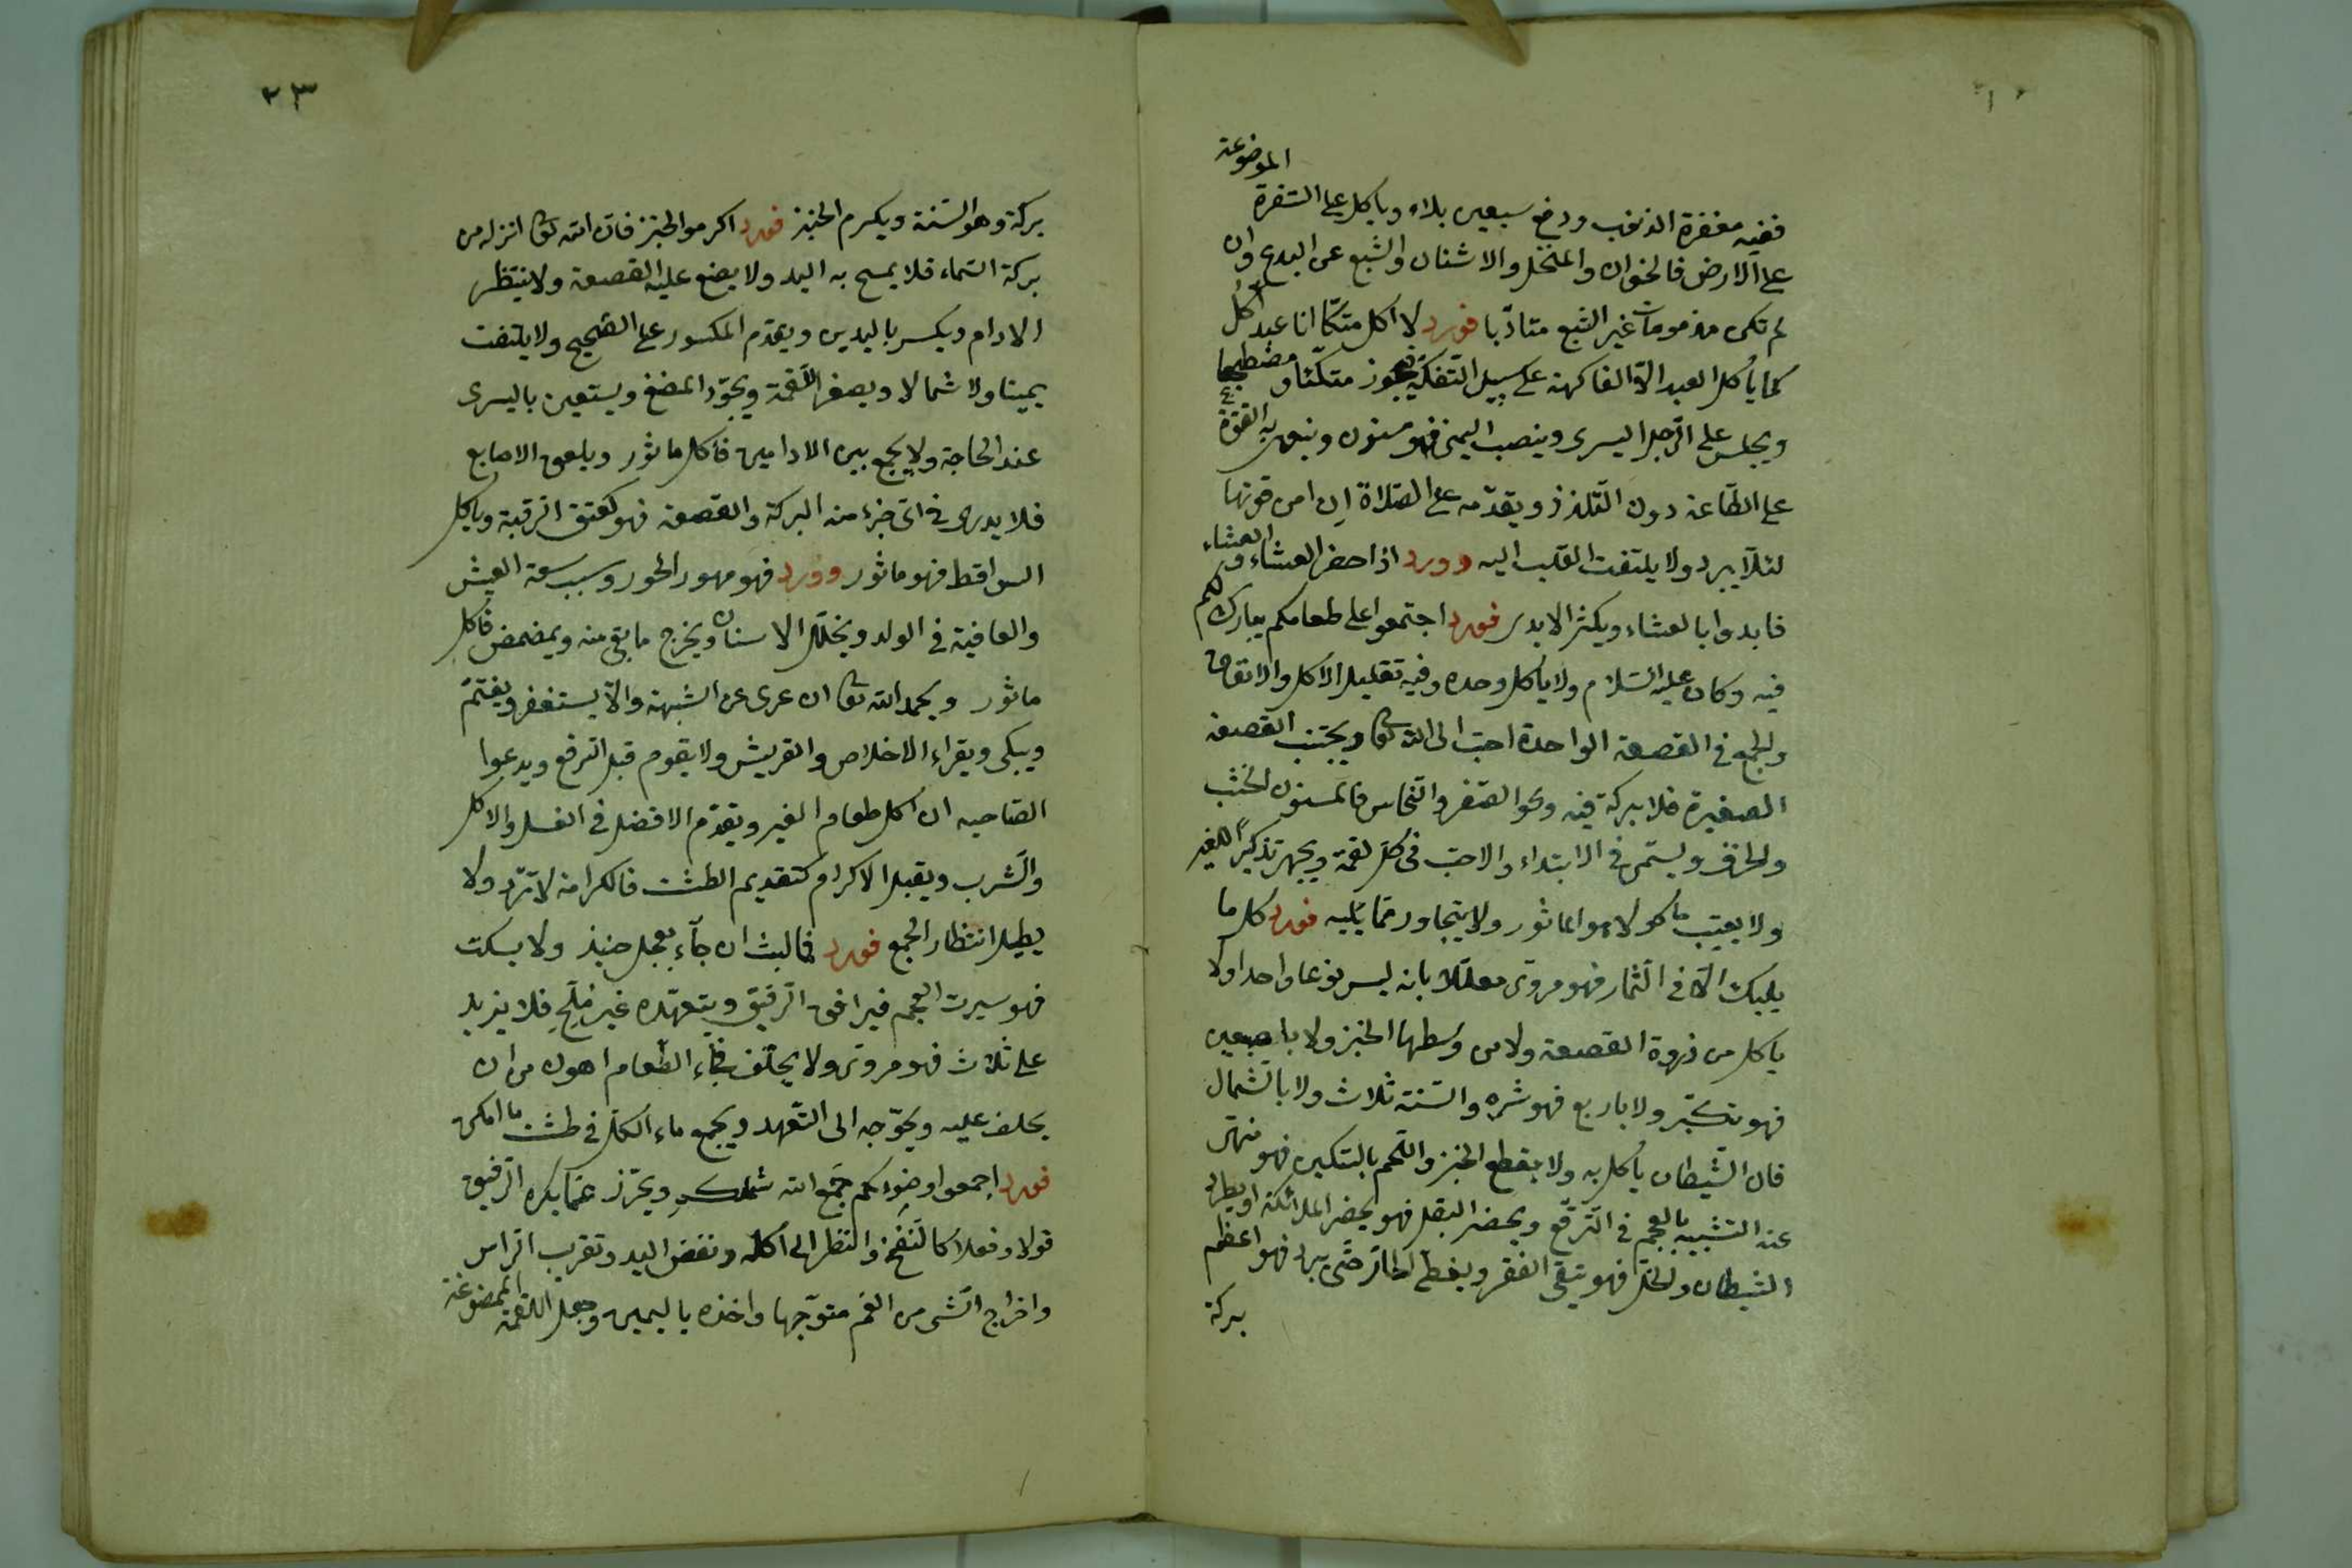 الموضوعة
ففيه مغفرة الذنوب ودفع سبعين بلاء ويأكل على السفرة
على الارض فالخوان والمنخل والاشنان والشبع عن البدع وان
لم تكن مذمومات غير الشبع متادبا فورد لا آكل متكأ انا عبد آكل
كما يأكل العبد الا الفاكهة على سبيل التفكه فيجوز متكئا و مضطجعا
ويجلس على الرجل اليسرى وينصب اليمنى فهو مسنون وينوى به القوة
على الطاعة دون التلذذ ويقدمه على الصلاة ان امن فوتها
لئلا يبرد ولا يلتفت القلب اليه وورد اذا حضر العشاء و العشاء
فابدوا بالعشاء ويكثر الايدى فورد اجتمعوا على طعامكم يبارك لكم
فيه وكان عليه السلام ولا يأكل وحده وفيه تقليل الاكل والانفاق
والجمع فى القصعة الواحدة احب الى الله تعا ويجتنب القصعة
الصغيرة فلا بركة فيه ونحو الصفر والنحاس فالمسنون الخشب
والخزف ويسمى فى الابتداء والاحب فى كل لقمة ويجهر تذكيرا للغير
ولا يعيب مأكولا هو الماثور ولا يتجاور مما يليه فورد كل ما
يليك الا فى الثمار فهو مروى معللا بانه ليس نوعا واحدا ولا
ياكل من ذروة القصعة ولا من وسطها الخبز ولا باصبعين
فهو تكبر ولا باربع فهو شره والسنة ثلاث ولا بالشمال
فان الشيطان ياكل به ولا يقطع الخبز واللحم بالسكين فهو منهى
عنه التشبيه بالعجم فى الترفع ويحضر البقل فهو يحضر الملائكة او يطرد
الشيطان والخل فهو ينفى الفقر ويغطى الحار حتى يبرد فهو اعظم
بركة
٢٣
بركة وهو السنة ويكرم الخبز فورد اكرموا الخبز فان الله تعا انزله من
بركة السماء فلا يمسح به اليد ولا يضع عليه القصعة ولا ينتظر
الادام ويكسر باليدين ويقدم المكسور على الصحيح ولا يلتفت
يمينا ولا شمالا ويصغر اللقمة ويجود المضغ ويستعين باليسرى
عند الحاجة ولا يجمع بين الادامين فأكل ماثور ويلعق الاصابع
فلا يدرى فى اى جزء منه البركة والقصعة فهو كعتق الرقبة ويأكل
السواقط فهو ماثور وورد فهو مهور الحور وسبب سعة العيش
والعافية فى الولد ويخلل الاسنان ويخرج ما بقى منه ويمضمض فاكل
ماثور ويحمد الله تعا ان عرى عن الشبهة والا يستغفر ويغتم
ويبكى ويقراء الاخلاص والقريش ولا يقوم قبل الرفع ويدعوا
لصاحبه ان اكل طعام الغير ويقدم الافضل فى الغسل والاكل
والشرب ويقبل الاكرام كتقديم الطشت فالكرامة لا ترد ولا
يطيل انتظار الجمع فورد فما لبث ان جآء بعجل حنيذ ولا يسكت
فهو سيرت العجم فيرافق الرفيق ويتعهده غير ملح فلا يزيد
على ثلاث فهو مروى ولا يحلف فجاء الطعام اهون من ان
يحلف عليه ويحوجه الى التعهد ويجمع ماء الكل فى طشت ما امكن
فورد اجمعوا وضوءكم جمع الله شملكم ويحترز عما يكره الرفيق
قولا وفعلا كالنفخ والنظر الى اكله ونفض اليد وتقرب الراس
واخراج الشى من الفم متوجها واخذه باليمين وجعل اللقمة الممضوغة